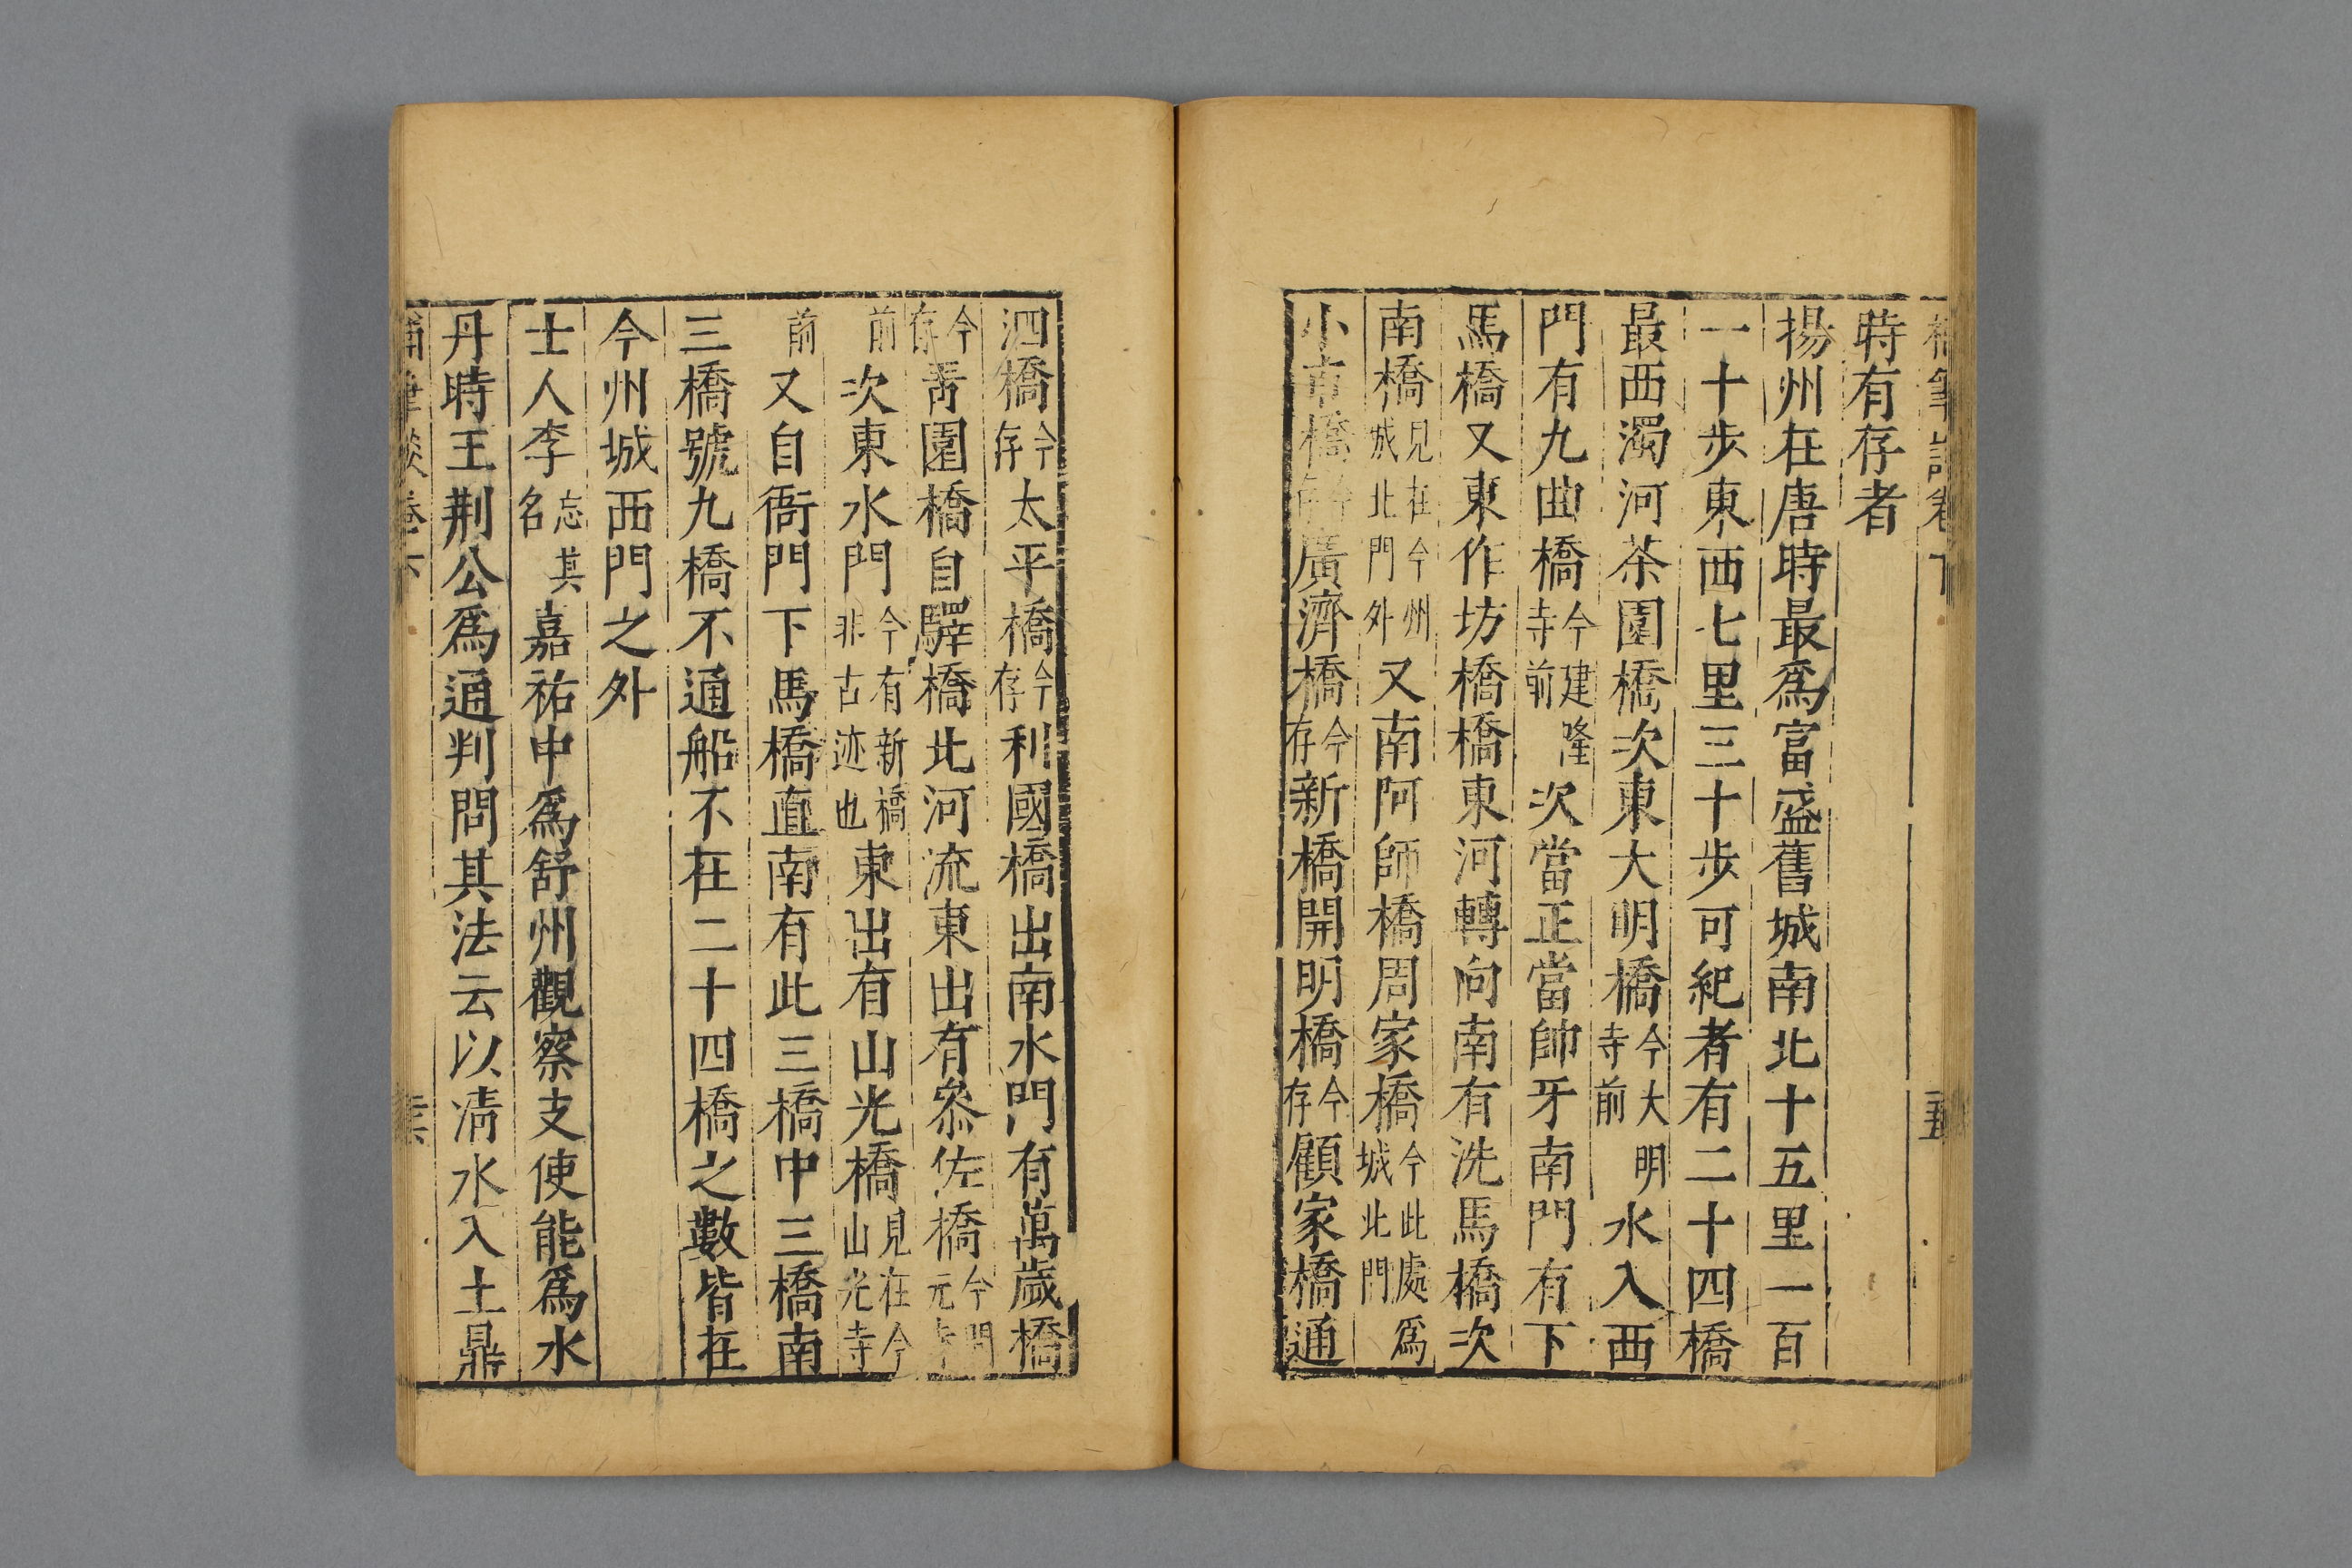 時有存者
揚州在唐時最爲富盛舊城南北十五里一百
一十步東西七里三十步可紀者有二十四橋
最西濁河茶園橋次東大明橋今大明寺前水入西
門有九曲橋今建隆寺前次當正當帥牙南門有下
馬橋又東作坊橋橋東河轉向南有洗馬橋次
南橋見在今州城北門外又南阿師橋周家橋今此處爲城北門
小市橋今存廣濟橋今存新橋開明橋今存顧家橋通
泗橋今存太平橋今存利國橋出南水門有萬歲橋
今存靑園橋自驛橋北河流東出有叅佐橋今開元寺
前次東水門今有新橋非古迹也東出有山光橋見在今山光寺
前又自衙門下馬橋直南有北三橋中三橋南
三橋號九橋不通船不在二十四橋之數皆在
今州城西門之外
士人李忘其名嘉祐中爲舒州觀察支使能爲水
丹時王荆公爲通判問其法云以淸水入土鼎